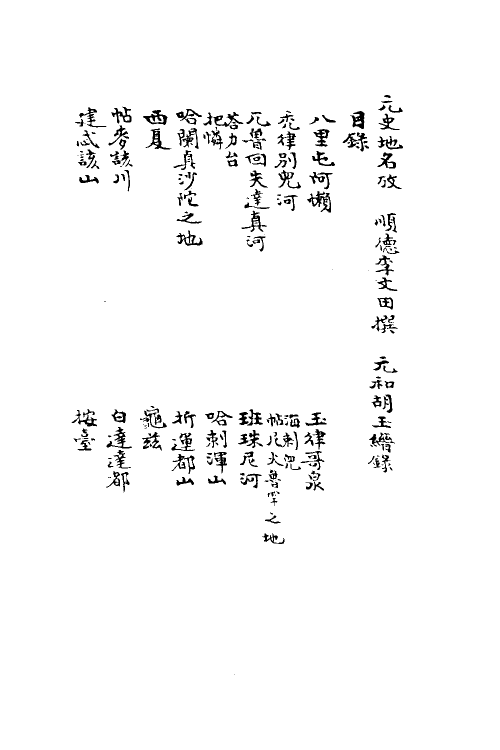 元史地名攷　順德李文田撰　元和胡玉縉錄
目錄
八里屯阿懶　玉律哥泉
禿律別兒河　海剌兒　帖尼火魯罕之地
兀魯回失連真河　班珠尼河
答力台　把憐　哈剌渾山
哈闌真沙陀之地　折運都山
西夏　龜茲
帖麥該川　白達達都
建忒該山　按臺